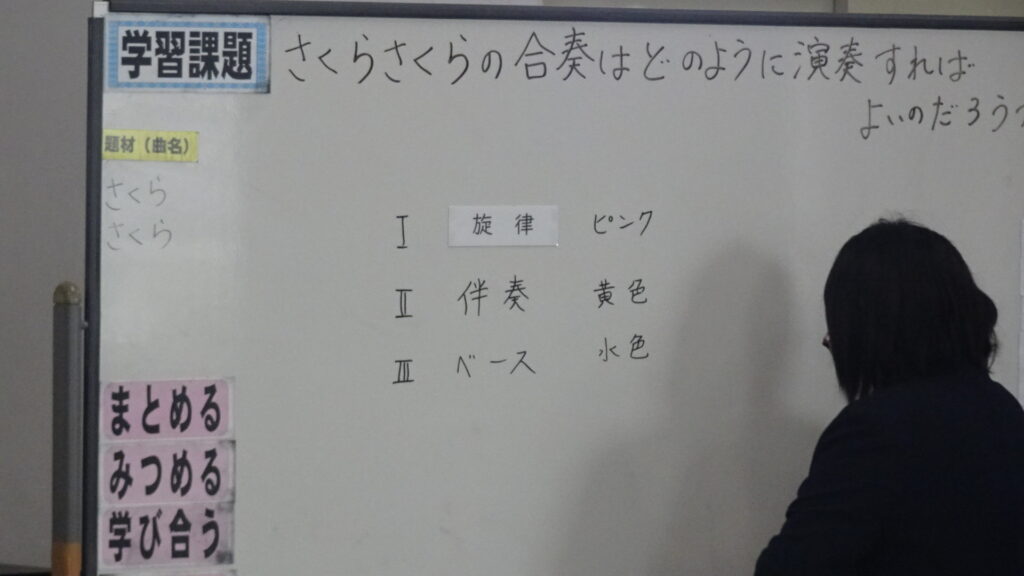 学習課題 さくらさくらの合奏はどのように演奏すれば
よいのだろう
題材（曲名）
さくら
さくら
Ⅰ 旋律 ピンク
Ⅱ 伴奏 黄色
Ⅲ ベース 水色
まとめる
みつめる
学び合う